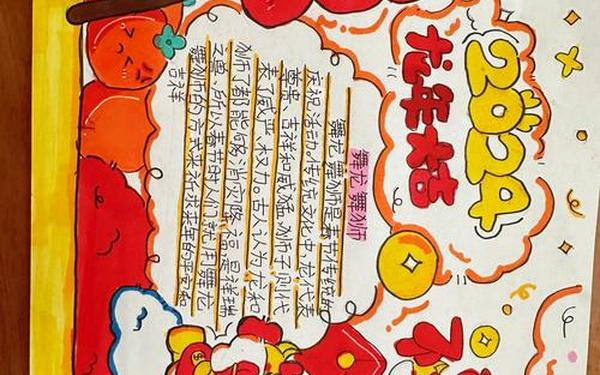 2024
龙年大吉
舞龙 舞狮
舞龙 舞狮是春节传统的
庆祝活动。传统文化中,龙代表
着尊贵、吉祥和威猛,狮子则代
表了威严、权力。古人认为龙和
狮子都能够消灾 是祥瑞
之兽,所以春节时人们就用舞龙
舞狮的方式来祈求来年的平安和
吉祥